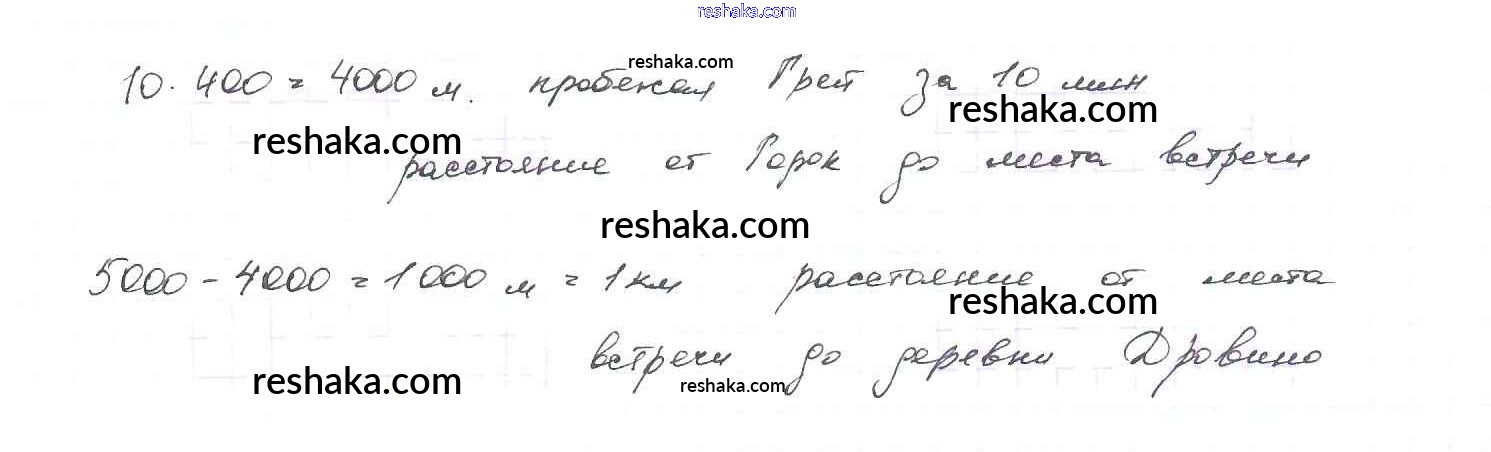 reshaka.com
reshaka.com
10 · 400 = 4000 м. пробежал Грей за 10 мин
reshaka.com
reshaka.com
расстояние от Горок до места встречи
reshaka.com
5000 - 4000 = 1000 м = 1 км расстояние от места
reshaka.com
встречи до деревни Дровино
reshaka.com
reshaka.com